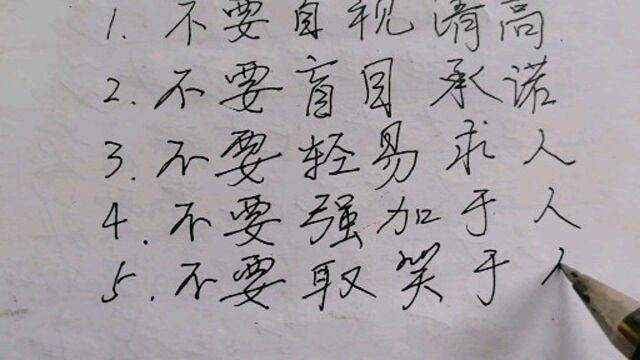 1. 不要自视清高
2. 不要盲目承诺
3. 不要轻易求人
4. 不要强加于人
5. 不要取笑于人